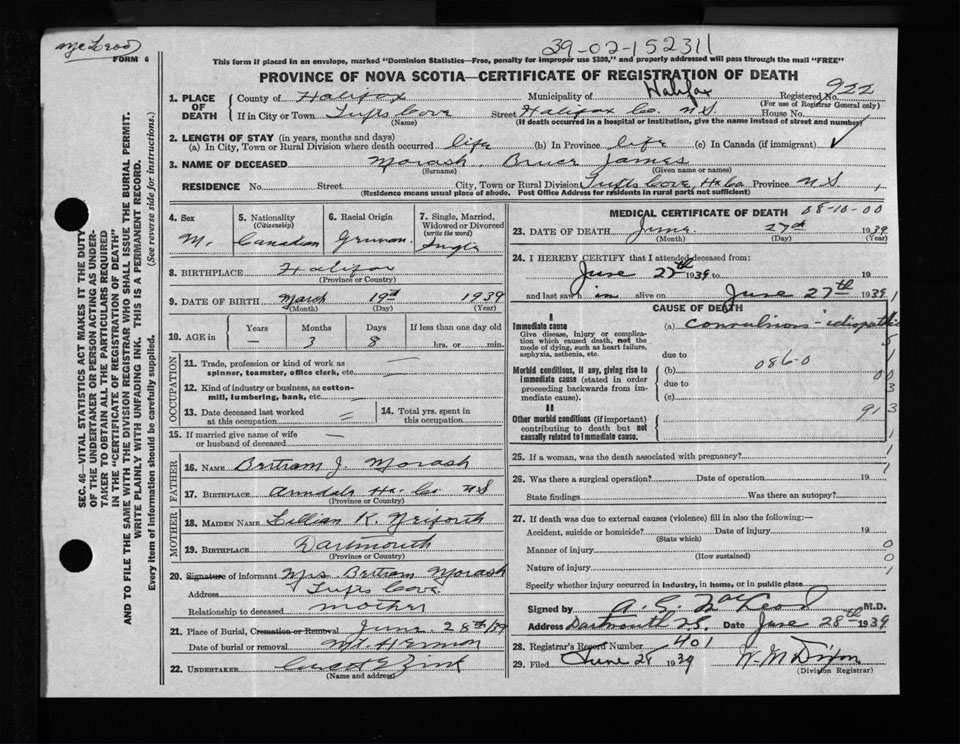 McLeod
FORM 6
39-02-152311
This form if placed in an envelope, marked "Dominion Statistics—Free, penalty for improper use $300," and properly addressed will pass through the mail "FREE"
PROVINCE OF NOVA SCOTIA—CERTIFICATE OF REGISTRATION OF DEATH
1. PLACE OF DEATH
County of Halifax Municipality of Halifax Registered No. 922
(For use of Registrar General only)
If in City or Town Tufts Cove Street Halifax Co. N.S. House No.
(Name) (If death occurred in a hospital or institution, give the name instead of street and number)
2. LENGTH OF STAY (in years, months and days)
(a) In City, Town or Rural Division where death occurred life (b) In Province life (c) In Canada (if immigrant) ✓
3. NAME OF DECEASED Morash Bruce James
(Surname) (Given name or names)
RESIDENCE No. Street City, Town or Rural Division Tufts Cove, Hx Co Province N S
(Residence means usual place of abode. Post Office Address for residents in rural parts not sufficient)
4. Sex M.
5. Nationality (Citizenship) Canadian
6. Racial Origin German
7. Single, Married, Widowed or Divorced (write the word) Single
8. BIRTHPLACE Halifax
(Province or Country)
9. DATE OF BIRTH March 19th 1939
(Month) (Day) (Year)
10. AGE in
Years Months Days If less than one day old
— 3 8 hrs. or min.
OCCUPATION
11. Trade, profession or kind of work as spinner, teamster, office clerk, etc. —
12. Kind of industry or business, as cotton-mill, lumbering, bank, etc. —
13. Date deceased last worked at this occupation =
14. Total yrs. spent in this occupation
15. If married give name of wife or husband of deceased —
FATHER
16. NAME Bertram J. Morash
17. BIRTHPLACE Armdale Hx. Co N S
(Province or Country)
MOTHER
18. MAIDEN NAME Lillian K.
19. BIRTHPLACE Dartmouth
(Province or Country)
20. Signature of informant Mrs Bertram Morash
Address Tufts Cove
Relationship to deceased mother
21. Place of Burial, Cremation or Removal June 28th/39
Date of burial or removal Mt Hermon
22. UNDERTAKER Zink
(Name and address)
MEDICAL CERTIFICATE OF DEATH 08-10-00
23. DATE OF DEATH June 27th 1939
(Month) (Day) (Year)
24. I HEREBY CERTIFY that I attended deceased from:
June 27th 1939 to 19
and last saw him alive on June 27th 1939
CAUSE OF DEATH
I
Immediate cause
Give disease, injury or complication which caused death, not the mode of dying, such as heart failure, asphyxia, asthenia, etc.
(a) Convulsions - idiopathic
due to
Morbid conditions, if any, giving rise to immediate cause (stated in order proceeding backwards from immediate cause).
(b) 086-0
due to
(c)
II
Other morbid conditions (if important) contributing to death but not causally related to immediate cause.
913
25. If a woman, was the death associated with pregnancy?
26. Was there a surgical operation? Date of operation 19
State findings Was there an autopsy?
27. If death was due to external causes (violence) fill in also the following:—
Accident, suicide or homicide? Date of injury 19
(State which)
Manner of injury 0
(How sustained)
Nature of injury 0
Specify whether injury occurred in industry, in home, or in public place 1
Signed by A. G. MacLeod M.D.
Address Dartmouth N.S. Date June 28th 1939
28. Registrar's Record Number 401
29. Filed June 28 1939 W. M. Dixon
(Division Registrar)
SEC. 46—VITAL STATISTICS ACT MAKES IT THE DUTY
OF THE UNDERTAKER OR PERSON ACTING AS UNDERTAKER TO OBTAIN ALL THE PARTICULARS REQUIRED
IN THE "CERTIFICATE OF REGISTRATION OF DEATH"
AND TO FILE THE SAME WITH THE DIVISION REGISTRAR WHO SHALL ISSUE THE BURIAL PERMIT.
WRITE PLAINLY WITH UNFADING INK. THIS IS A PERMANENT RECORD.
Every item of information should be carefully supplied. (See reverse side for instructions.)